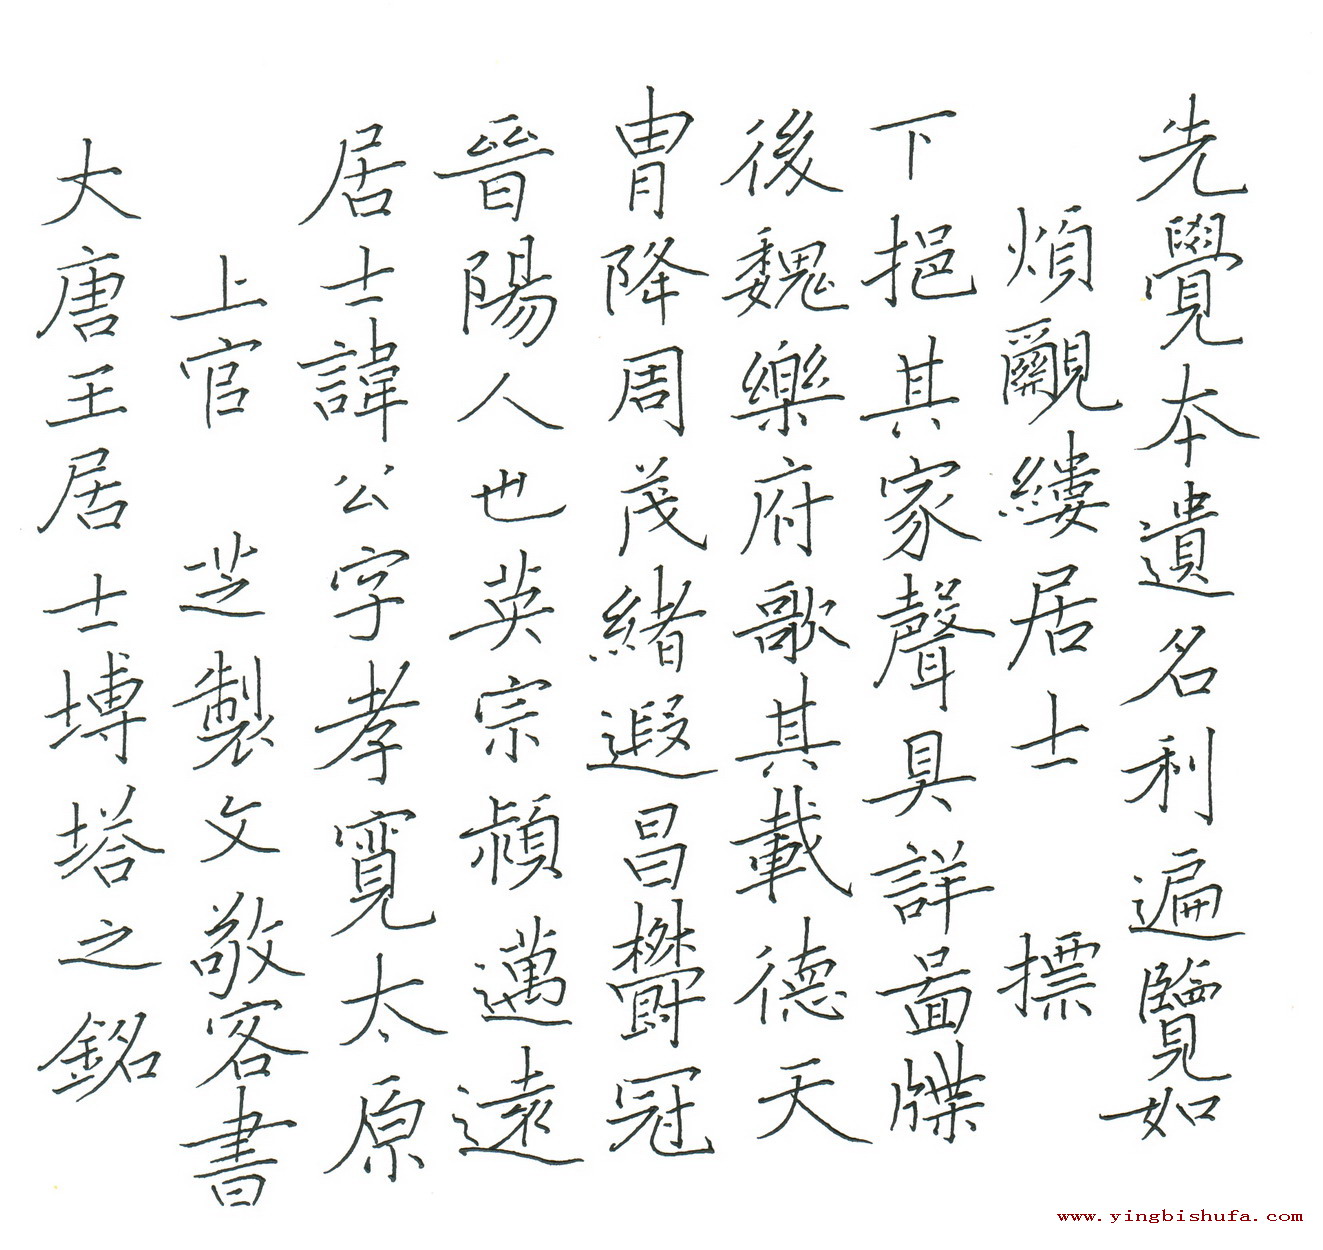 大唐王居士塼塔之銘
上官 芝製文敬客書
居士諱公字孝寬太原
晉陽人也英宗穎邁遠
胄降周茂緒遐昌鬱冠
後魏樂府歌其載德天
下挹其家聲具詳啚牒
煩覼縷居士 摽
先覺本遺名利遍覽如
www.yingbishufa.com